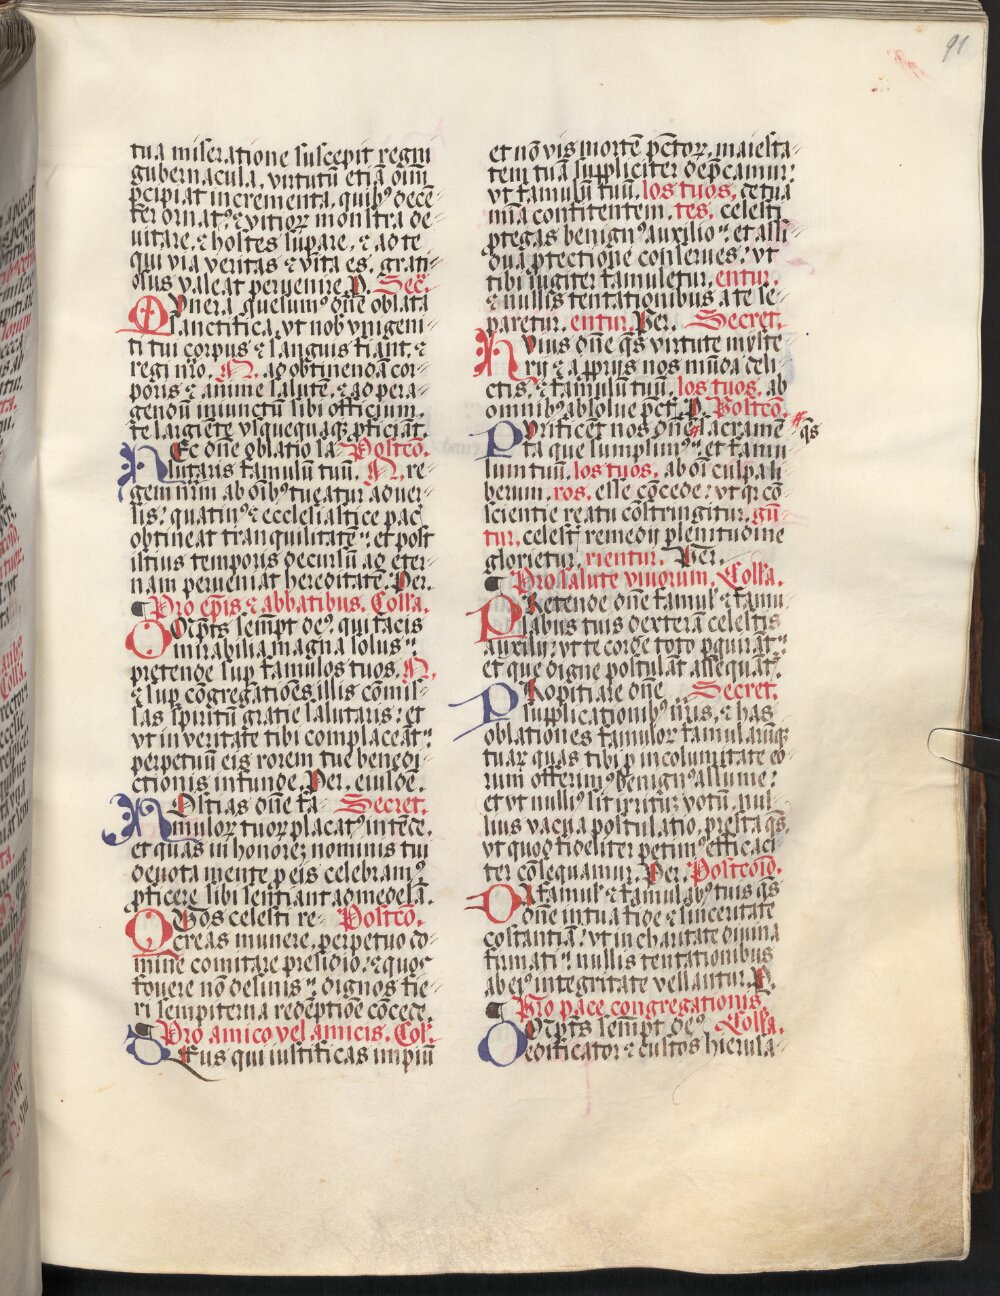 91
tua miseratione suscepit regni
gubernacula, virtutū etiā oīm
ꝑcipiat incrementa, quibꝰ decē-
ter ornatꝰ ⁊ vitioꝝ monstra de-
uitare, ⁊ hostes suꝑare, ⁊ ad te
qui via veritas ⁊ vita es, grati-
osus valeat peruenire. P. Secř.
Mvnera, quesumꝰ dn̄e oblata
sanctifica, vt nob̄ vnigeni-
ti tui corpus ⁊ sanguis fiant, ⁊
regi nr̄o. N. ad obtinendā cor-
poris ⁊ anime salutē, ⁊ ad pera-
gendū iniunctū sibi officium,
te largiēte vsquequaqꝫ ꝓficiāt.
HEc dn̄e oblatio sa- Postcō.
lutaris famulū tuū. N. re-
gem nr̄m ab oīb̄ꝰ tueatur aduer-
sis: quatinꝰ ⁊ ecclesiastice pac̄
obtineat tranquilitatē: et post
istius temporis decursū ad eter-
nam perueniat hereditatē. Per.
¶ Pro ep̄is ⁊ abbatibus. Coll'a.
Omp̄ts semꝑt deꝰ, qui facis
mirabilia magna solus:
pretende suꝑ famulos tuos. N.
⁊ suꝑ cōgregatiōes illis cōmis-
sas spiritū gratie salutaris: et
vt in veritate tibi complaceāt:
perpetuū eis rorem tue benedi-
ctionis infunde. Per. eiusdē.
HOstias dn̄e fa- Secret.
muloꝝ tuoꝝ placatꝰ intēde,
et quas in honorē nominis tui
deuota mente ꝓ eis celebramꝰ,
ꝓficere sibi sentiant ad medelā.
QVos celesti re- Postcō.
creas munere, perpetuo do-
mine comitare presidio: ⁊ quos
fouere nō desinis: dignos fie-
ri sempiterna redēptiōe cōcede.
¶ Pro amico vel amicis. Coll'.
DEus qui iustificas impiū
et nō vis mortē pc̄toꝝ, maiesta-
tem tuā suppliciter dep̄camur:
vt famulū tuū, los tuos, de tua
mīa confitentem, tes, celesti
ꝓtegas benignꝰ auxilio: et assi-
dua ꝓtectione conserues: vt
tibi iugiter famuletur, entur,
⁊ nullis tentationibus a te se-
paretur, entur. Per. Secret.
HVius dn̄e q̄s virtute myste-
rij ⁊ a ꝓprijs nos mūda deli-
ctis, ⁊ famulū tuū, los tuos, ab
omnibꝰ absolue pctīs. P. Postcō.
PVrificēt nos dn̄e sacramē- q̄s
ta que sumpsimꝰ: et famu-
lum tuū, los tuos, ab oī culpa li-
berum, ros, esse cōcede: vt qi cō-
scientie reatu cōstringitur, gū-
tur, celestꝭ remedij plenitudine
glorietur, rientur. Per.
¶ Pro salute viuorum. Coll'a.
PRetende dn̄e famul' ⁊ famu-
labus tuis dexterā celestis
auxilij: vt te corde toto ꝑquirāt:
et que digne postulāt assequāt'.
PRopitiare dn̄e Secret.
supplicationibꝰ nr̄is, ⁊ has
oblationes famuloꝝ famularūqꝫ
tuaꝝ quas tibi ꝓ incolumitate eo-
rum offerimꝰ, benignꝰ assume:
et vt nulliꝰ sit irritū votū, nul-
lius vacua postulatio, presta q̄s,
vt quod fideliter petimꝰ, efficaci-
ter cōsequamur. Per. Postcōīo.
DA famul' ⁊ famulabꝰ tuis q̄s
dn̄e in tua fide ⁊ sinceritate
cōstantiā: vt in charitate diuina
firmati: nullis tentationibus
ab eiꝰ integritate vellantur. P.
¶ Pro pace congregationis.
Omp̄ts semꝑt deꝰ Coll'a.
edificator ⁊ custos hierusa-